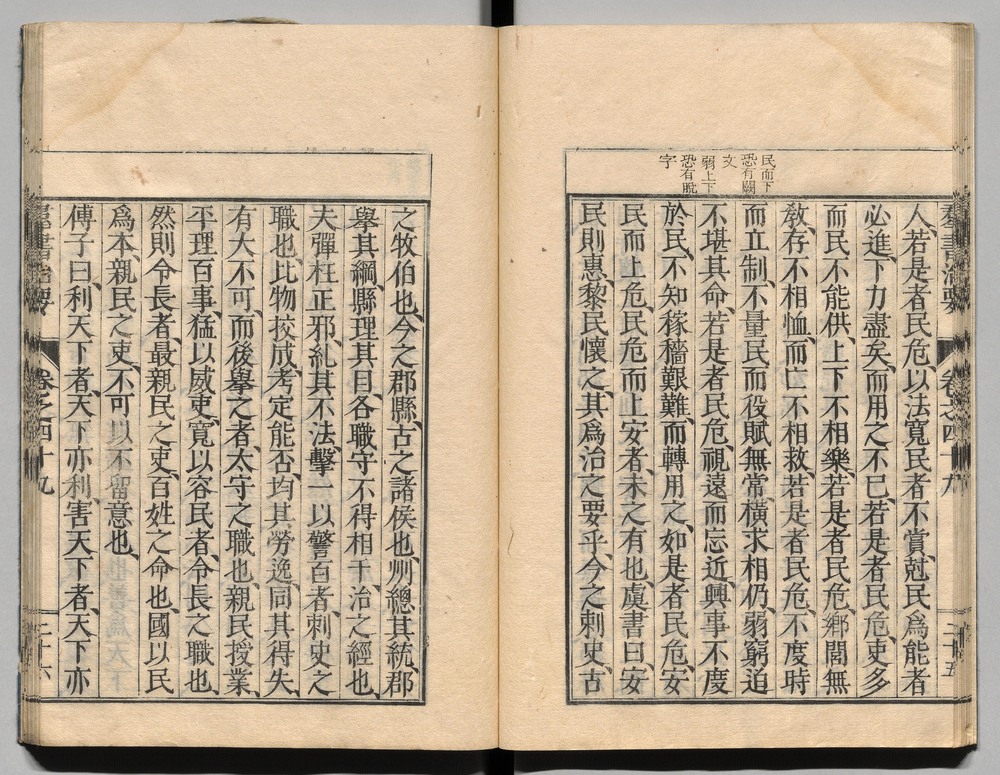 民而下
恐有闕
文
弱上下
恐有脫
字
人、若是者民危、以法寬民者不賞、剋民爲能者
必進、下力盡矣、而用之不已、若是者民危、吏多
而民不能供、上下不相樂、若是者民危、鄉閭無
教、存不相恤、而亡不相救、若是者民危、不度時
而立制、不量民而役賦無常、橫求相仍、弱窮迫
不堪其命、若是者民危、視遠而忘近、興事不度
於民、不知稼穡艱難、而轉用之、如是者民危、安
民而上危、民危而上安者、未之有也、虞書曰、安
民則惠、黎民懷之、其爲治之要乎、今之刺史、古
群書治要
卷之四十九
二十五
之牧伯也、今之郡縣、古之諸侯也、州總其統、郡
舉其綱、縣理其目、各職守不得相干、治之經也、
夫彈枉正邪、糺其不法、擊一以警百者、刺史之
職也、比物校成、考定能否、均其勞逸、同其得失、
有大不可、而後舉之者、太守之職也、親民授業、
平理百事、猛以威吏、寬以容民者、令長之職也、
然則令長者、最親民之吏、百姓之命也、國以民
爲本、親民之吏、不可以不留意也、
傅子曰、利天下者、天下亦利、害天下者、天下亦
群書治要
卷之四十九
二十六